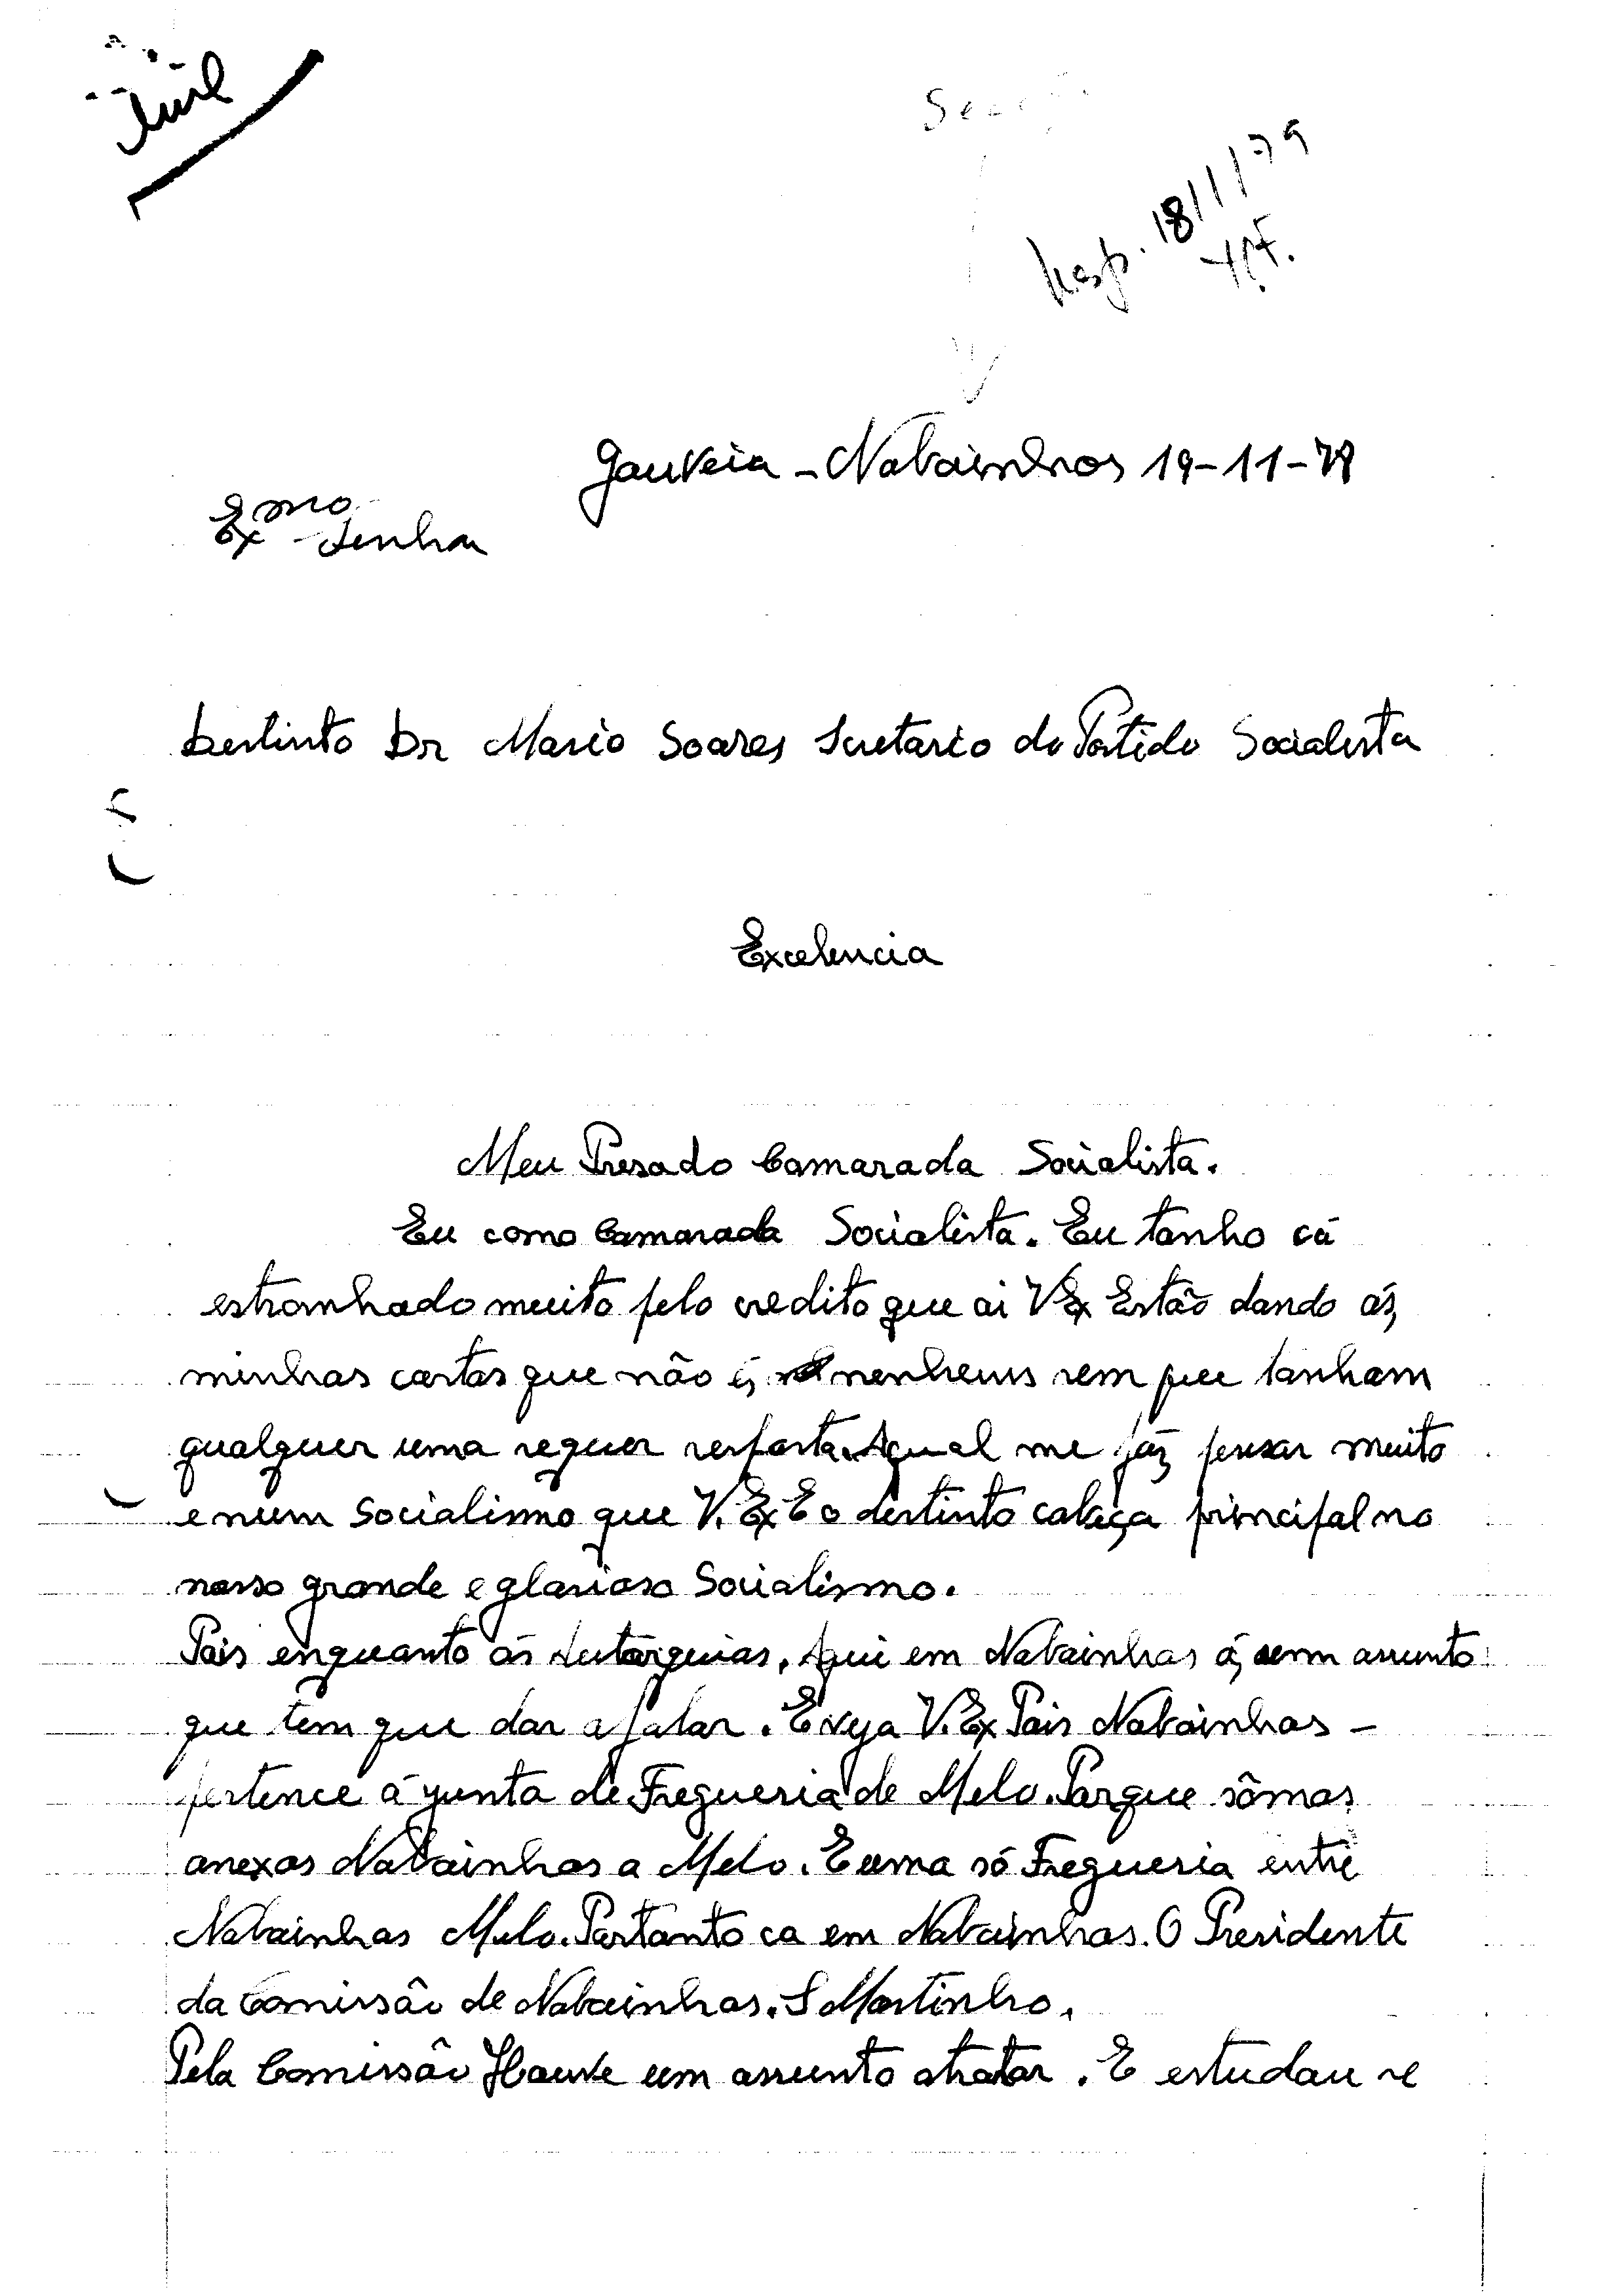 Resp. 18/1/79
Gouveia - Nabainhos 19-11-78
Exmo Senhor
Destinto Dr Mario Soares Secretario do Partido Socialista
Excelencia
Meu Presado Camarada Socialista.
Eu como Camarada Socialista. Eu tanho cá
estranhado muito pelo credito que ai V Ex Estão dando ás
minhas cartas que não é nenheuns sem que tanham
qualquer uma sequer resposta. Aqual me fáz pensar muito
e num Socialismo que V. Ex E o destinto cabeça principal no
nosso grande e glorioso Socialismo.
Pois enquanto ás Autarquias. Aqui em Nabainhos á, um assunto
que tem que dar a falar. E veja V. Ex Pois Nabainhos -
pertence á yunta de Fregueria de Melo. Porque sômos
anexos Nabainhos a Melo. E uma só Fregueria entre
Nabainhos Melo. Portanto ca em Nabainhos. O Presidente
da Comissão de Nabainhos. S Martinho.
Pela Comissão Houve um assunto atratar. E estudou se